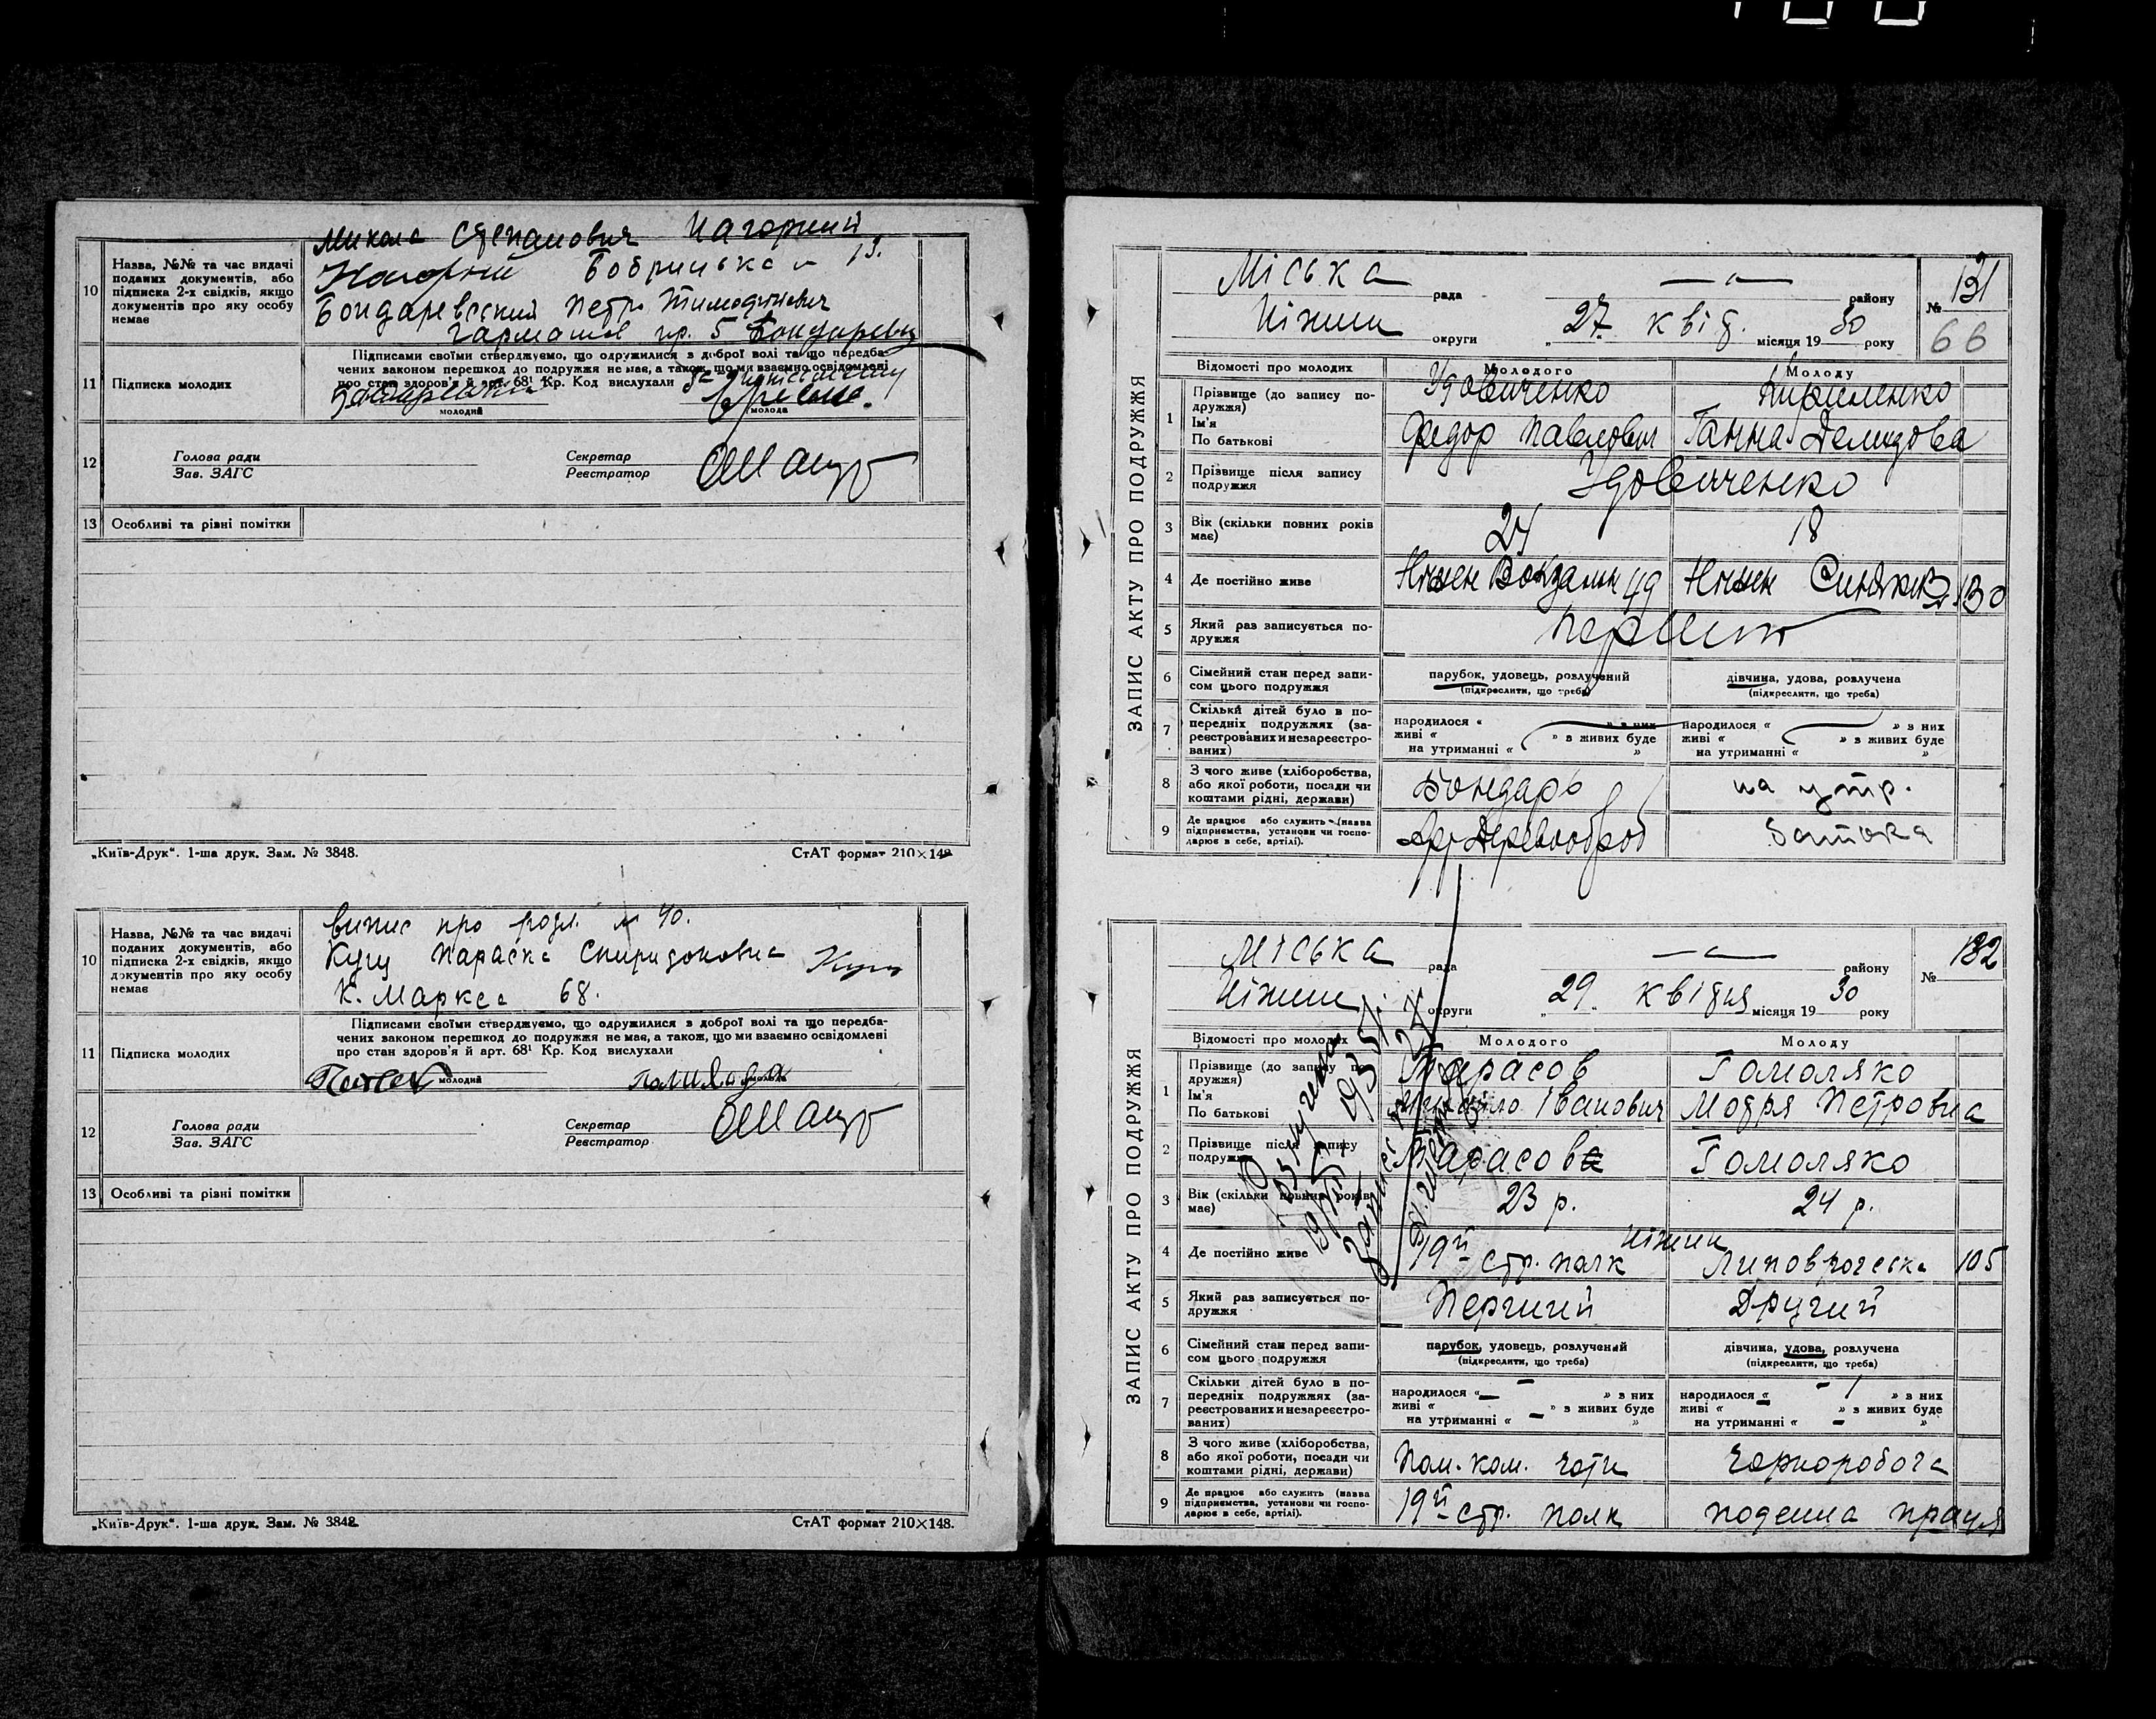 Микола Степанович Нагорний
10 Назва, №№ та час видачі поданих документів, або підписка 2-х свідків, якщо документів про яку особу немає
Нагорний Бобрицька 13.
Бондаревский Петро Тимофієвич
пр. 5
11 Підписка молодих
Підписами своїми стверджуємо, що одружилися з доброї волі та що передбачених законом перешкод до подружжя не має, а також, що ми взаємно освідомлені про стан здоров'я й арт. 68¹ Кр. Код вислухали
молодий
молода
12 Голова ради
Зав. ЗАГС
Секретар
Реєстратор
13 Особливі та різні помітки
„Київ-Друк“. 1-ша друк. Зам. № 3848.
СтАТ формат 210×148
10 Назва, №№ та час видачі поданих документів, або підписка 2-х свідків, якщо документів про яку особу немає
випис про розл. № 40.
Куц Параска Спиридоновна
К. Маркса 68.
11 Підписка молодих
Підписами своїми стверджуємо, що одружилися з доброї волі та що передбачених законом перешкод до подружжя не має, а також, що ми взаємно освідомлені про стан здоров'я й арт. 68¹ Кр. Код вислухали
молодий
молода
12 Голова ради
Зав. ЗАГС
Секретар
Реєстратор
13 Особливі та різні помітки
„Київ-Друк“. 1-ша друк. Зам. № 3848.
СтАТ формат 210×148.
ЗАПИС АКТУ ПРО ПОДРУЖЖЯ
Міська рада — району № 131
Ніжин округи „27 квіт. місяця 1930 року 66
Відомості про молодих Молодого Молоду
1 Прізвище (до запису подружжя) Удовиченко Кириленко
Ім'я По батькові Федор Павлович Ганна Демидова
2 Прізвище після запису подружжя Удовиченко
3 Вік (скільки повних років має) 24 18
4 Де постійно живе Ніжен Вокзальн 49 Ніжен Синяків. 130
5 Який раз записується подружжя Перший
6 Сімейний стан перед записом цього подружжя парубок, удовець, розлучений (підкреслити, що треба) дівчина, удова, розлучена (підкреслити, що треба)
7 Скільки дітей було в попередніх подружжях (зареєстрованих и незареєстрованих) народилося « » з них живі « » з живих буде на утриманні « » народилося « » з них живі « » з живих буде на утриманні « »
8 З чого живе (хліборобства, або якої роботи, посади чи коштами рідні, держави) Бондарь на утр.
9 Де працює або служить (назва підприємства, установи чи господарює в себе, артілі). Арт Деревооброб батька
ЗАПИС АКТУ ПРО ПОДРУЖЖЯ
Міська рада — району № 132
Ніжин округи „29 квітня місяця 1930 року
Розлучена
Відомості про молодих Молодого Молоду
1 Прізвище (до запису подружжя) Тарасов Гомоляко
Ім'я По батькові Михайло Іванович Мотря Петровна
2 Прізвище після запису подружжя Тарасов Гомоляко
3 Вік (скільки повних років має) 23 р. 24 р.
4 Де постійно живе 19й стр. полк Ніжин Липоврогська 105
5 Який раз записується подружжя Перший Другий
6 Сімейний стан перед записом цього подружжя парубок, удовець, розлучений (підкреслити, що треба) дівчина, удова, розлучена (підкреслити, що треба)
7 Скільки дітей було в попередніх подружжях (зареєстрованих и незареєстрованих) народилося « — » з них живі « » з живих буде на утриманні « — » народилося « — » з них живі « » з живих буде на утриманні « — »
8 З чого живе (хліборобства, або якої роботи, посади чи коштами рідні, держави) Пом. ком. чоти Чорноробоча
9 Де працює або служить (назва підприємства, установи чи господарює в себе, артілі). 19й стр. полк поденна праця